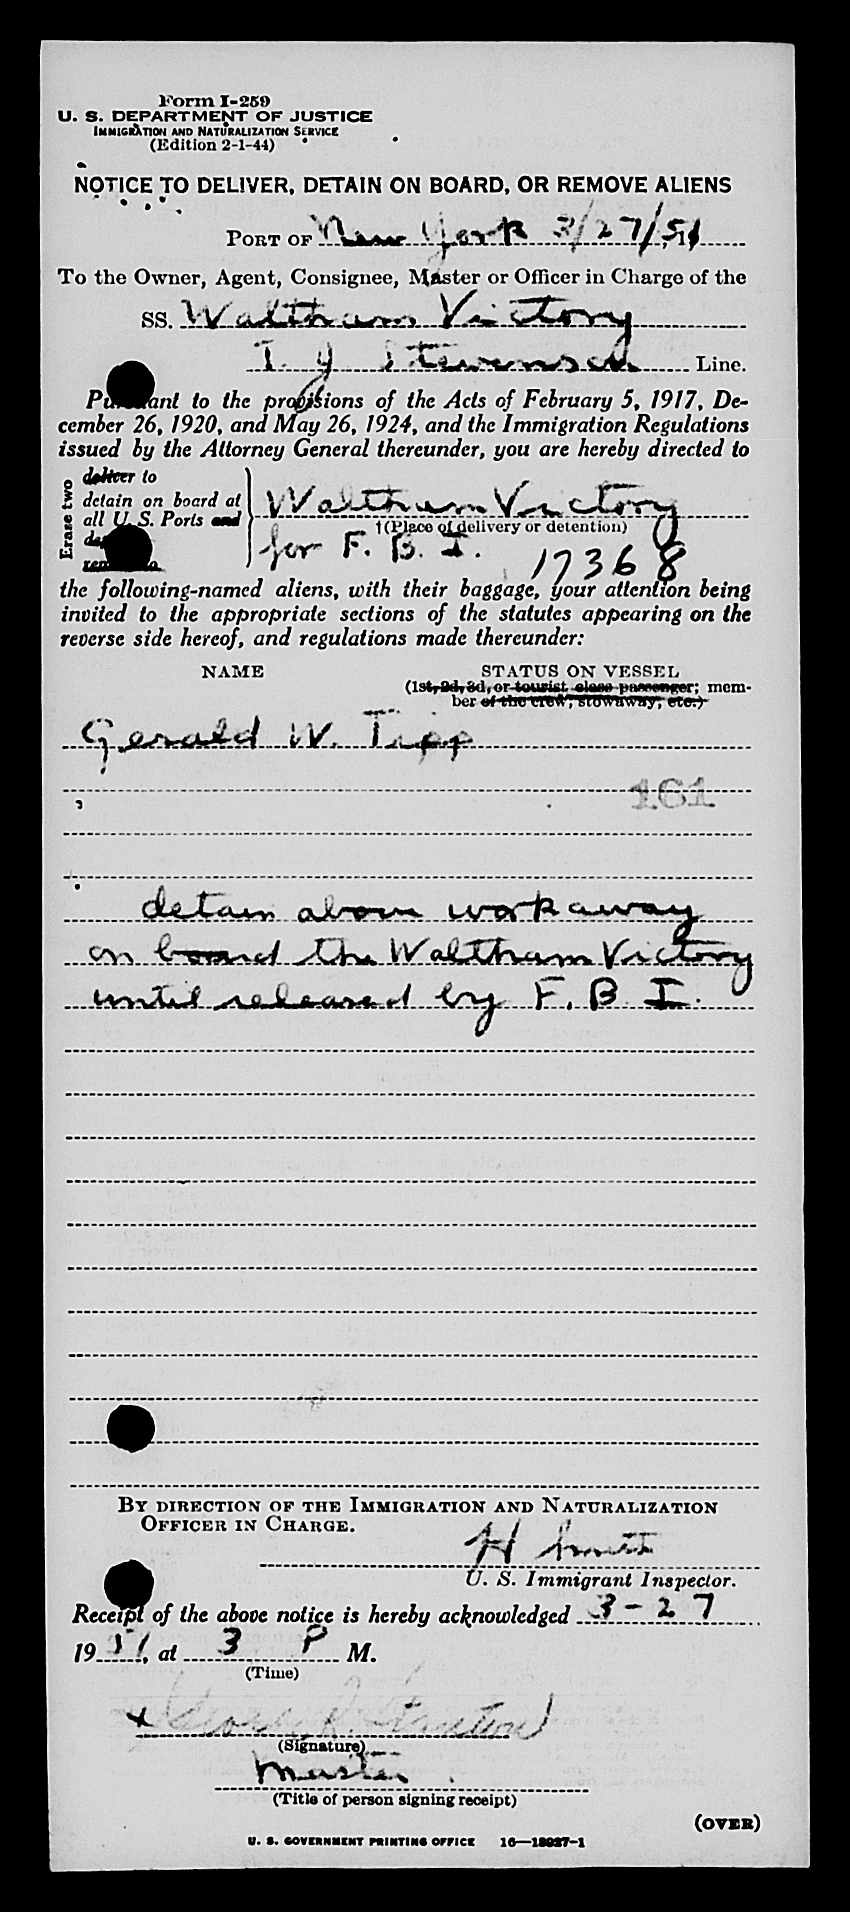 Form I-259
U. S. DEPARTMENT OF JUSTICE
IMMIGRATION AND NATURALIZATION SERVICE
(Edition 2-1-44)
NOTICE TO DELIVER, DETAIN ON BOARD, OR REMOVE ALIENS
PORT OF New York 3/27/51
To the Owner, Agent, Consignee, Master or Officer in Charge of the
SS. Waltham Victory
T. J Stevenson Line.
Pursuant to the provisions of the Acts of February 5, 1917, De-
cember 26, 1920, and May 26, 1924, and the Immigration Regulations
issued by the Attorney General thereunder, you are hereby directed to
Erase two
deliver to
detain on board at
all U. S. Ports and
Waltham Victory
†(Place of delivery or detention)
for F. B. I. 17368
the following-named aliens, with their baggage, your attention being
invited to the appropriate sections of the statutes appearing on the
reverse side hereof, and regulations made thereunder:
NAME STATUS ON VESSEL
(1st, 2d, 3d, or tourist class passenger; mem-
ber of the crew; stowaway; etc.)
Gerald W. Tipp
161
detain above workaway
on board the Waltham Victory
until released by F. B. I.
BY DIRECTION OF THE IMMIGRATION AND NATURALIZATION
OFFICER IN CHARGE.
H Smith
U. S. Immigrant Inspector.
Receipt of the above notice is hereby acknowledged 3-27
1951, at 3 P M.
(Time)
x
(Signature)
Master.
(Title of person signing receipt)
(OVER)
U. S. GOVERNMENT PRINTING OFFICE 16—18927-1